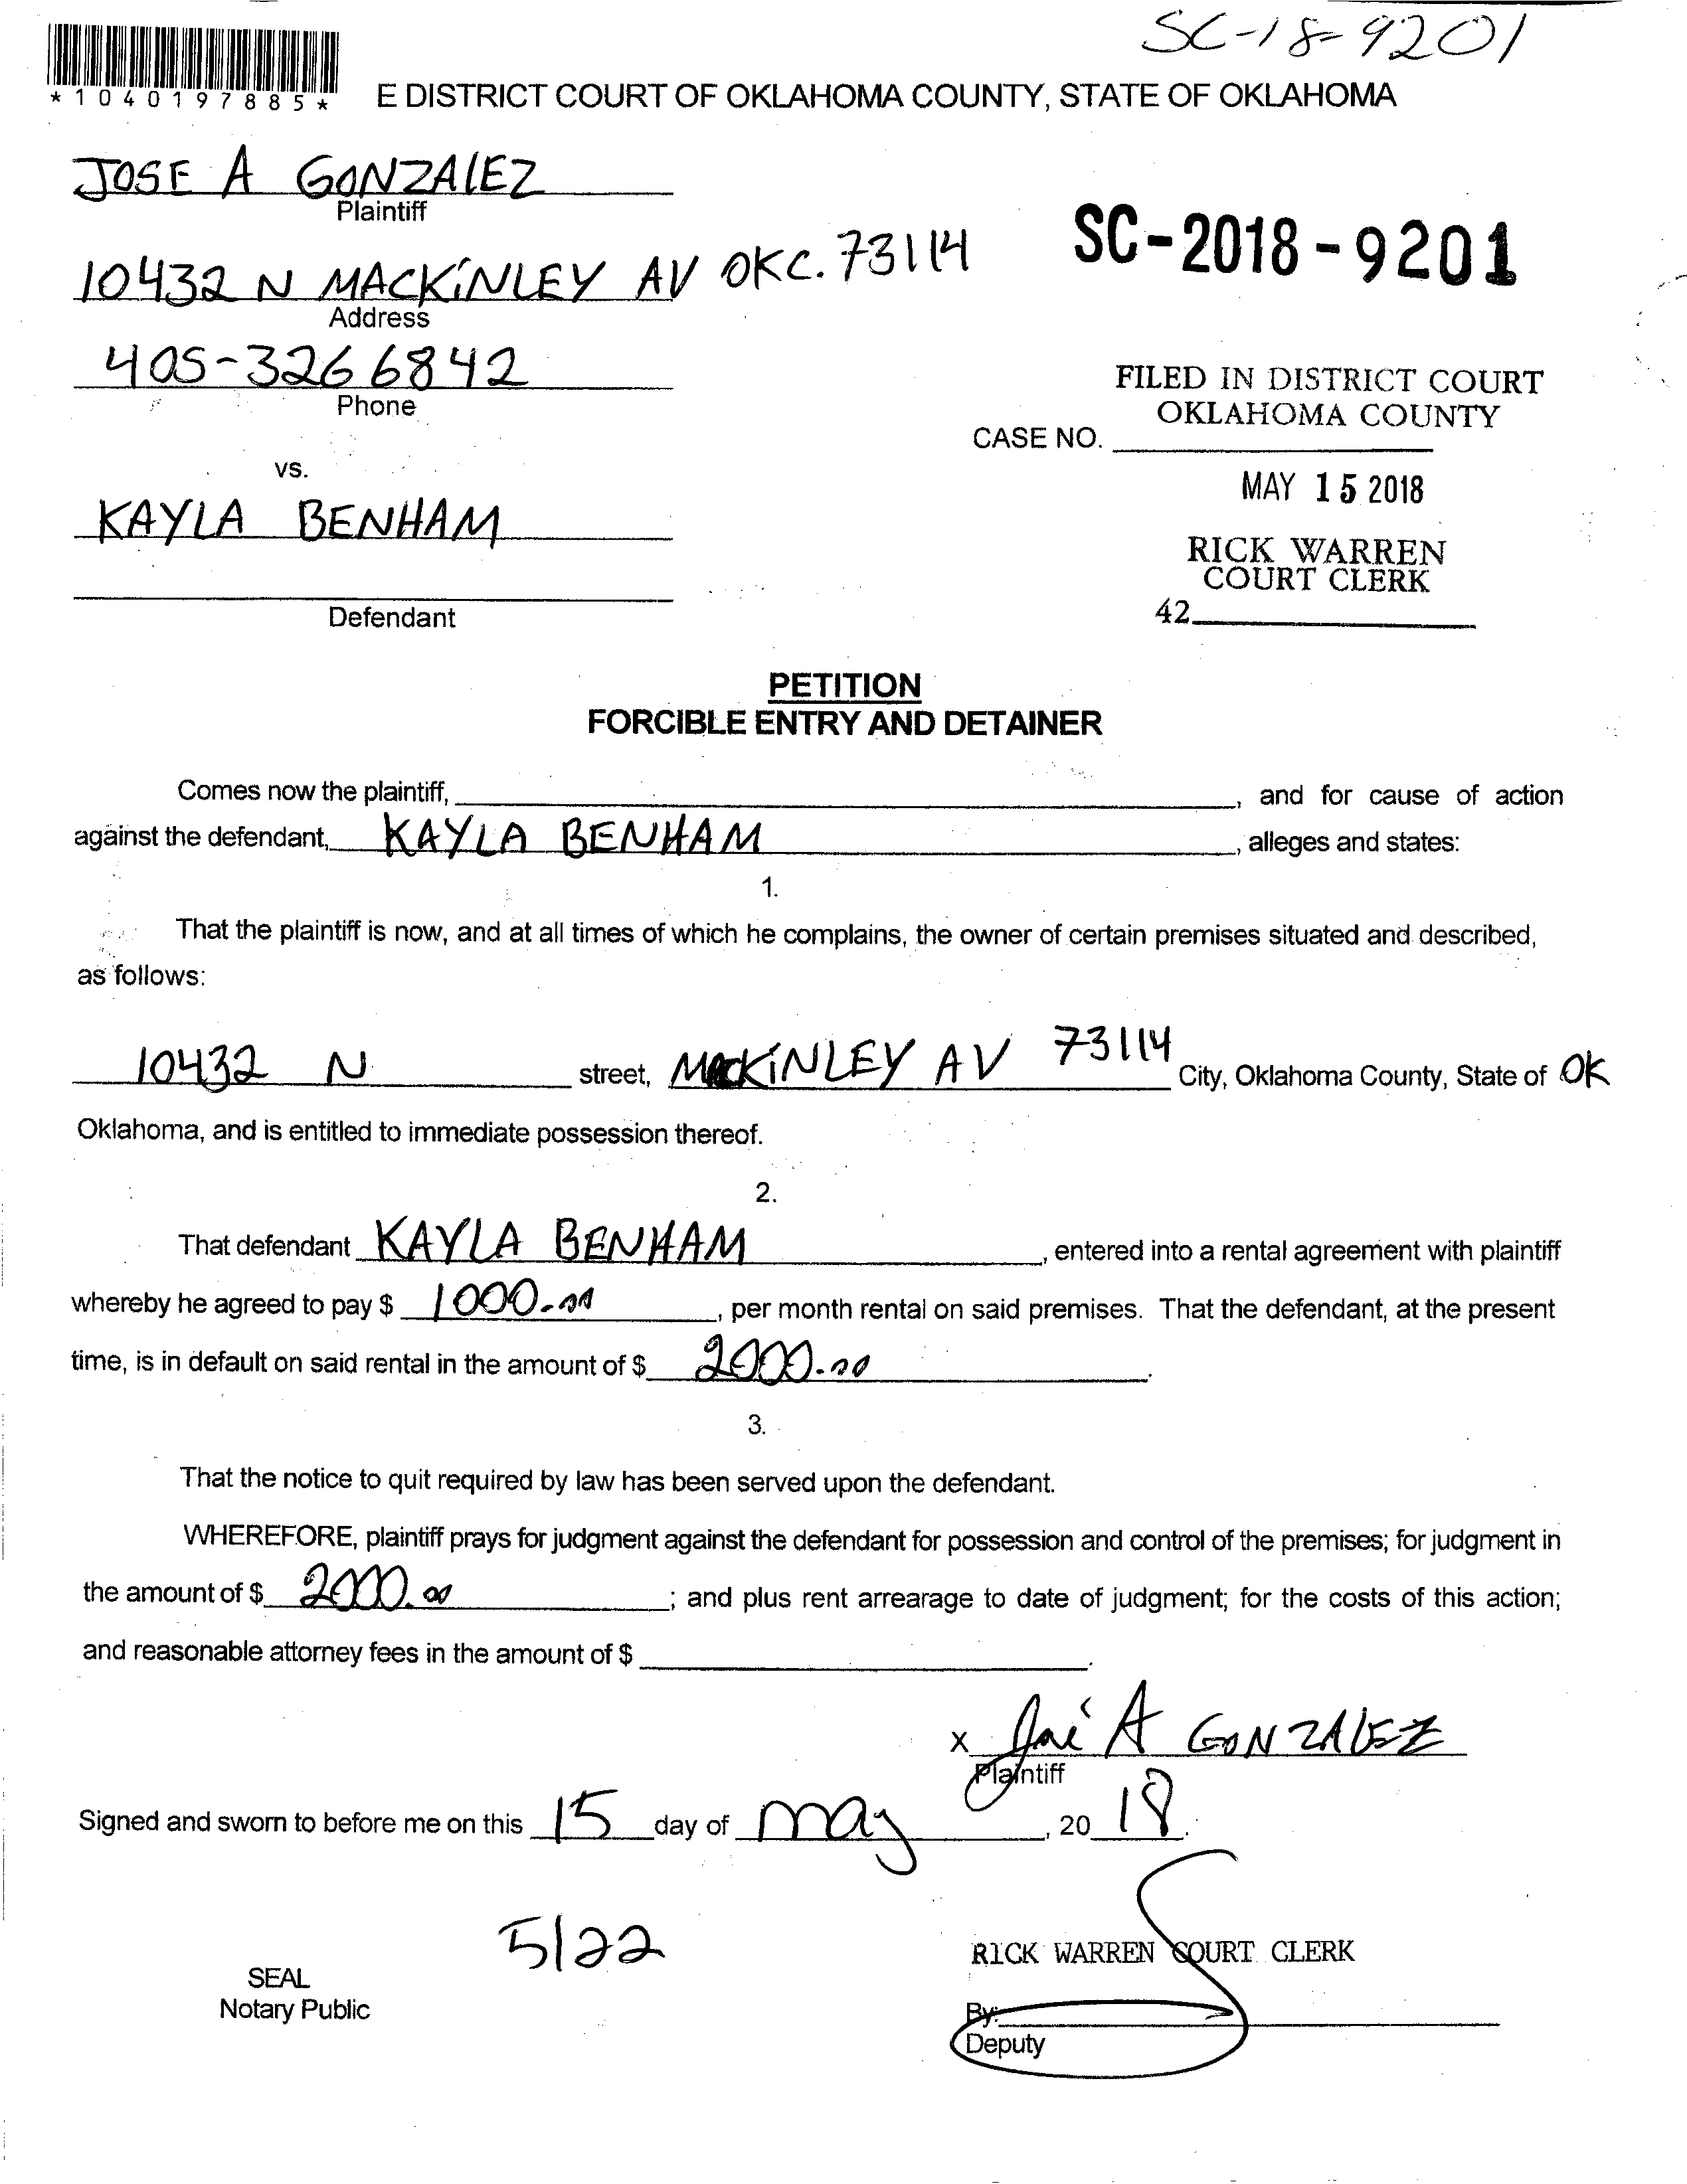 SC-18-9201
*1040197885*
E DISTRICT COURT OF OKLAHOMA COUNTY, STATE OF OKLAHOMA
JOSE A GONZALEZ
Plaintiff
10432 N MACKINLEY AV OKC. 73114
Address
SC-2018-9201
405-326 6842
Phone
FILED IN DISTRICT COURT
OKLAHOMA COUNTY
CASE NO.
vs.
MAY 15 2018
KAYLA BENHAM
RICK WARREN
COURT CLERK
Defendant
42
PETITION
FORCIBLE ENTRY AND DETAINER
Comes now the plaintiff, , and for cause of action
against the defendant, KAYLA BENHAM , alleges and states:
1.
That the plaintiff is now, and at all times of which he complains, the owner of certain premises situated and described,
as follows:
10432 N street, MACKINLEY AV 73114 City, Oklahoma County, State of OK
Oklahoma, and is entitled to immediate possession thereof.
2.
That defendant KAYLA BENHAM , entered into a rental agreement with plaintiff
whereby he agreed to pay $ 1000.00 , per month rental on said premises. That the defendant, at the present
time, is in default on said rental in the amount of $ 2000.00 .
3.
That the notice to quit required by law has been served upon the defendant.
WHEREFORE, plaintiff prays for judgment against the defendant for possession and control of the premises; for judgment in
the amount of $ 2000.00 ; and plus rent arrearage to date of judgment; for the costs of this action;
and reasonable attorney fees in the amount of $ .
x José A GONZALEZ
Plaintiff
Signed and sworn to before me on this 15 day of May , 20 18.
5/22
RICK WARREN COURT CLERK
SEAL
Notary Public
By:
Deputy